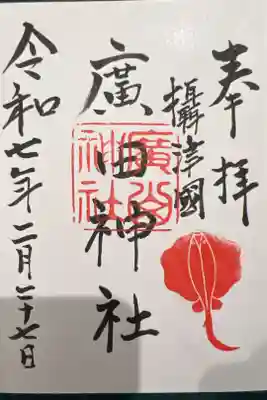 奉拝
攝津國
廣田神社
廣田神社
令和七年二月二十七日